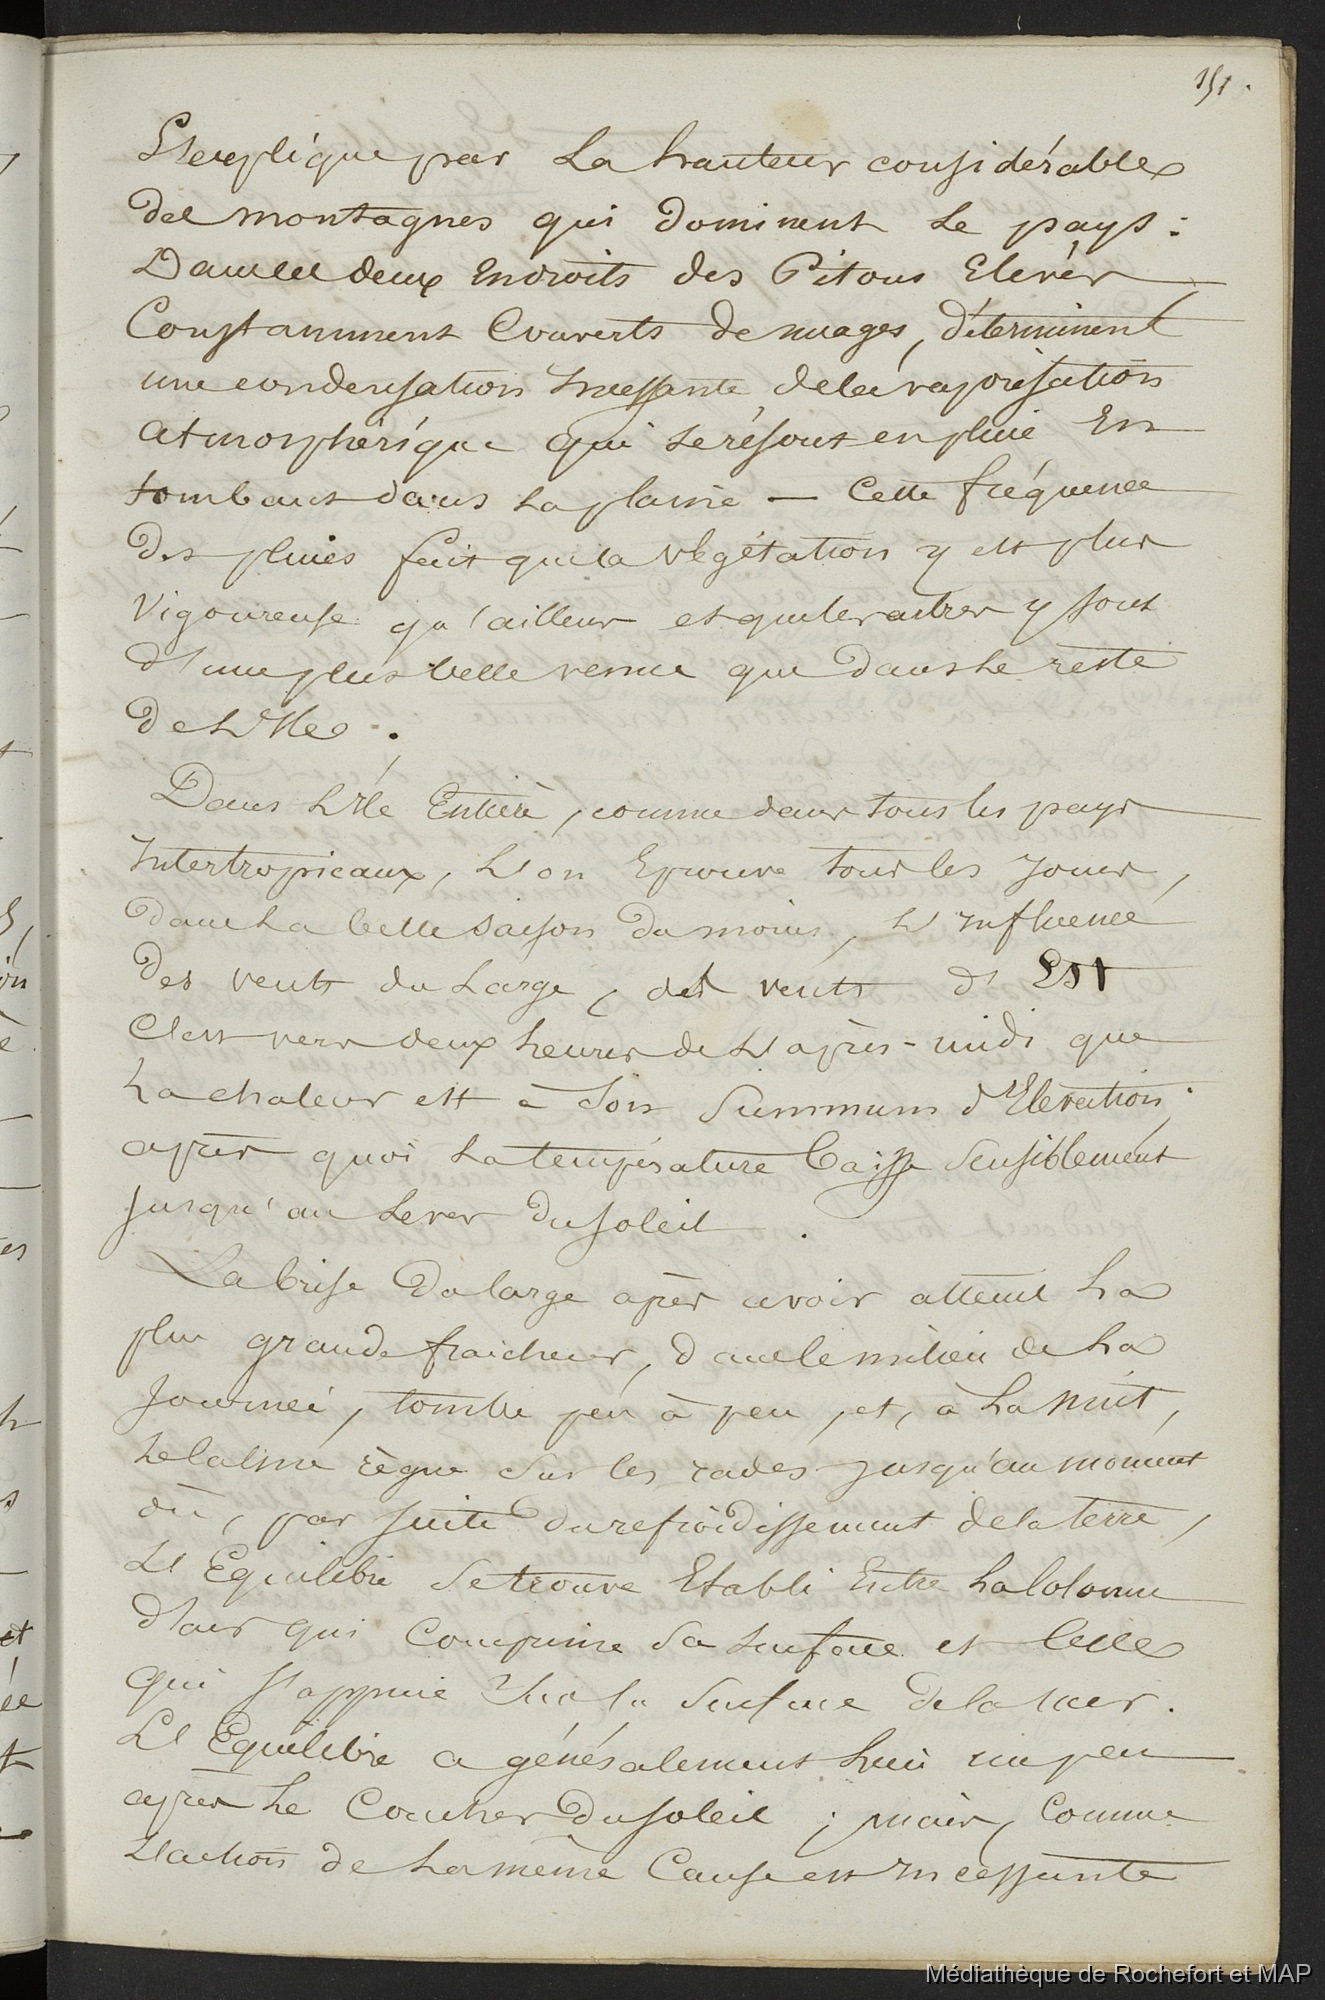 151.
S'explique par La hauteur considérable
des montagnes qui Dominent Le pays :
Dans les deux Endroits des Pitons Elevés
Constamment Couverts De nuages, déterminent
une condensation Incessante de la vaporisation
atmosphérique qui se résout en pluie En
tombant dans La plaine — Cette fréquence
Des pluies fait que la végétation y est plus
Vigoureuse qu'ailleurs et que les arbres y sont
d'une plus belle venue que Dans Le reste
De L'Ile.
Dans L'Ile Entière, comme dans tous les pays
Intertropicaux, L'on Eprouve tous les Jours,
Dans La belle saison Du moins, L'Influence
Des vents du Large, des vents d'Est
C'est vers deux heures de L'après-midi que
La chaleur est à Son Summum d'Elevation ;
après quoi La température baisse Sensiblement
Jusqu'au Lever Du soleil.
La brise Du large après avoir atteint La
plus grande fraicheur, dans le milieu de La
Journée, tombe peu à peu, et, à La nuit,
Le Calme règne Sur les rades Jusqu'au moment
où, par Suite Du refroidissement de la terre,
L'Equilibre Se trouve Etabli Entre La Colonne
d'air qui Comprime Sa Surface et Celle
qui s'appuie Sur la Surface de la mer.
L'Equilibre a généralement Lieu un peu
après Le Coucher Du soleil ; mais, Comme
L'action de La même Cause est Incessante
Médiathèque de Rochefort et MAP